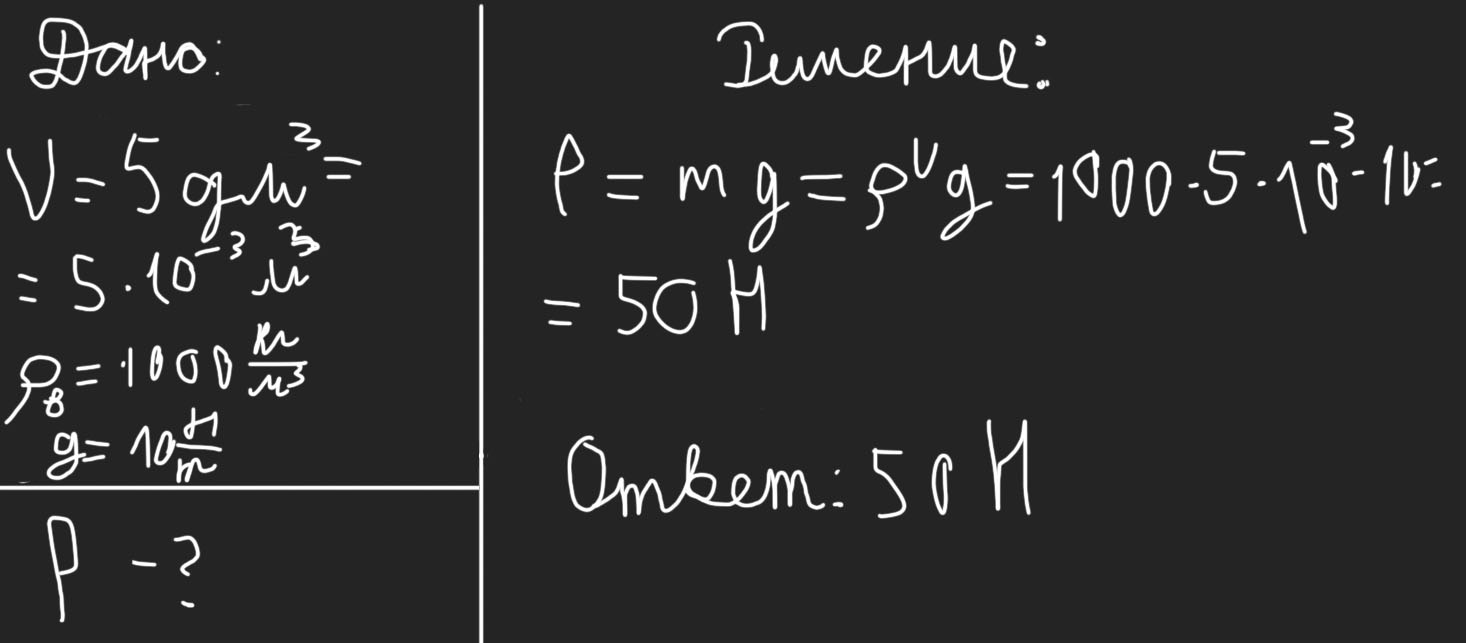 Дано:
V = 5 дм³ =
= 5 · 10⁻³ м³
ρ_в = 1000 кг/м³
g = 10 Н/кг
P – ?
Решение:
P = mg = ρVg = 1000 · 5 · 10⁻³ · 10 =
= 50 Н
Ответ: 50 Н